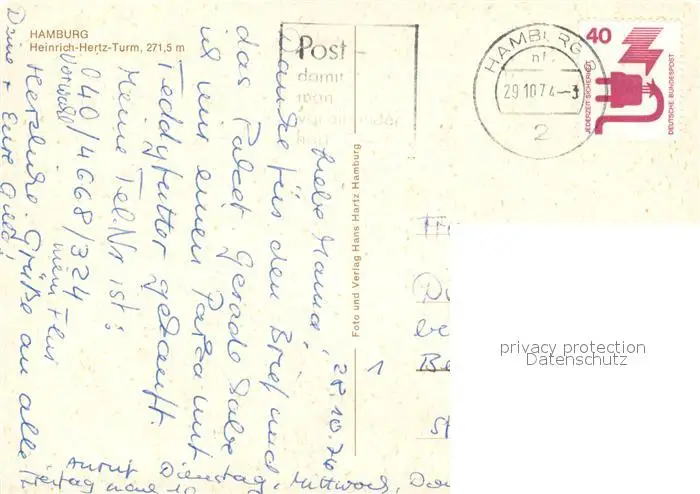 HAMBURG
Heinrich-Hertz-Turm, 271,5 m
Post-
damit
man
HAMBURG
29.10.74-3
2
40
JEDERZEIT SICHERHEIT
DEUTSCHE BUNDESPOST
Foto und Verlag Hans Hartz Hamburg
28.10.74
Liebe Mama,
Danke für den Brief und
das Paket. Gerade habe
ich mir einen Parka mit
Teddyfutter gekauft.
Meine Tel.Nr ist:
040/4668/324
Vorwahl
mein Flur
Anruf Dienstag, Mittwoch,
Freitag
Herzliche Grüße an alle
Deine + Eure
1
privacy protection
Datenschutz